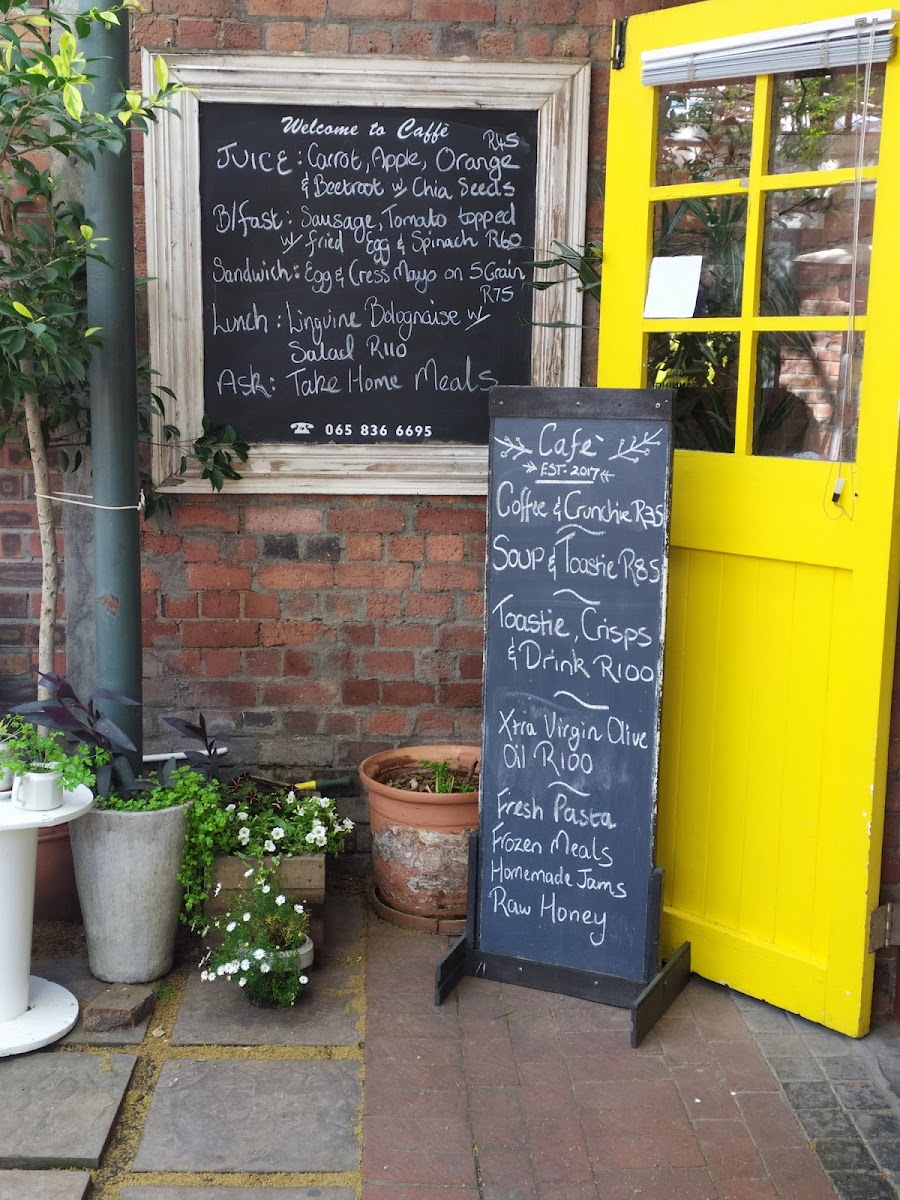 Welcome to Caffè
R45
JUICE: Carrot, Apple, Orange
& Beetroot w/ Chia Seeds
B/fast: Sausage, Tomato topped
w/ fried Egg & Spinach R60
Sandwich: Egg & Cress Mayo on 5 Grain
R75
Lunch: Linguine Bolognaise w/
Salad R110
Ask: Take Home Meals
☎ 065 836 6695
Cafè
EST. 2017
Coffee & Crunchie R35
Soup & Toastie R85
Toastie, Crisps
& Drink R100
Xtra Virgin Olive
Oil R100
Fresh Pasta
Frozen Meals
Homemade Jams
Raw Honey